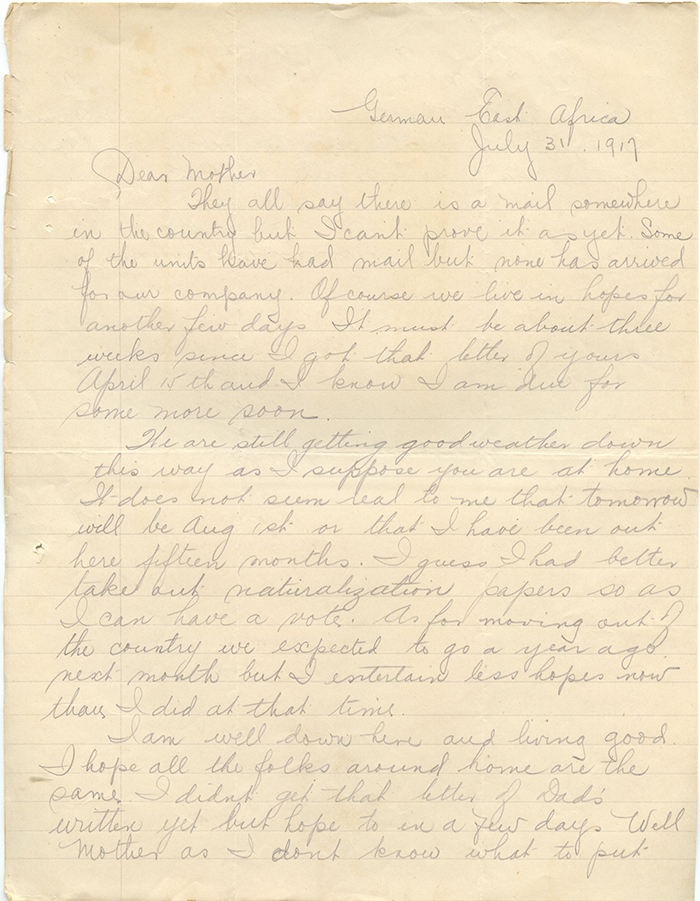 German East Africa
July 31. 1917
Dear Mother
They all say there is a mail somewhere
in the country but I cant prove it as yet. Some
of the units have had mail but none has arrived
for our company. Of course we live in hopes for
another few days It must be about three
weeks since I got that letter of yours
April 15th and I know I am due for
some more soon.
We are still getting good weather down
this way as I suppose you are at home.
It does not seem real to me that tomorrow
will be Aug 1st or that I have been out
here fifteen months. I guess I had better
take out naturalization papers so as
I can have a vote. As for moving out of
the country we expected to go a year ago
next month but I entertain less hopes now
than I did at that time.
I am well down here and living good.
I hope all the folks around home are the
same. I didn't get that letter of Dad's
written yet but hope to in a few days Well
Mother as I dont know what to put